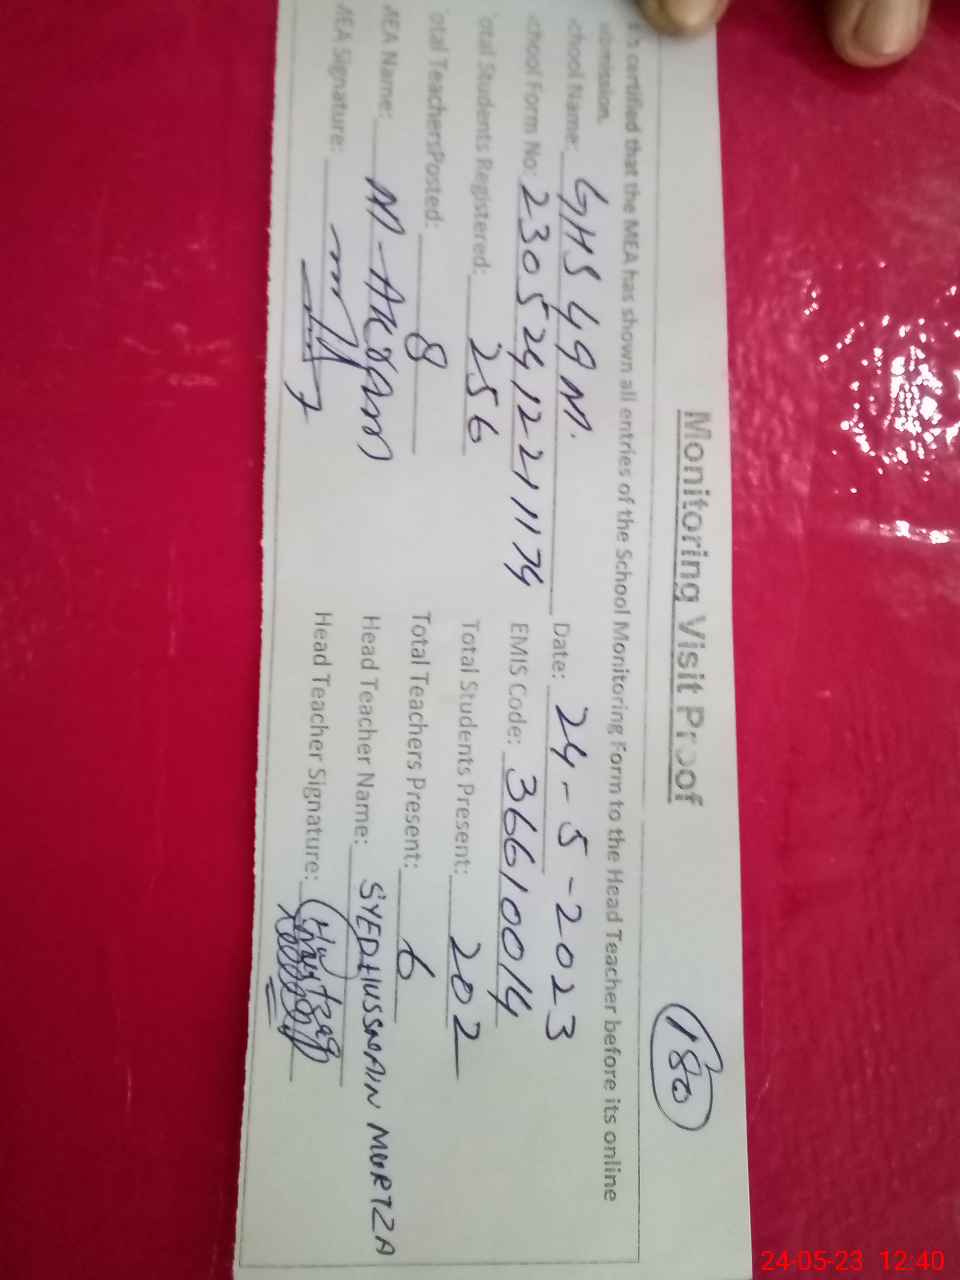 Monitoring Visit Proof
180
is certified that the MEA has shown all entries of the School Monitoring Form to the Head Teacher before its online
mission.
chool Name: GHS 49 M. Date: 24-5-2023
chool Form No: 23052412211174 EMIS Code: 36610014
otal Students Registered: 256 Total Students Present: 202
otal TeachersPosted: 8 Total Teachers Present: 6
MEA Name: M-Akram Head Teacher Name: SYED HUSSNAIN MURTZA
MEA Signature: Head Teacher Signature:
24-05-23 12:40